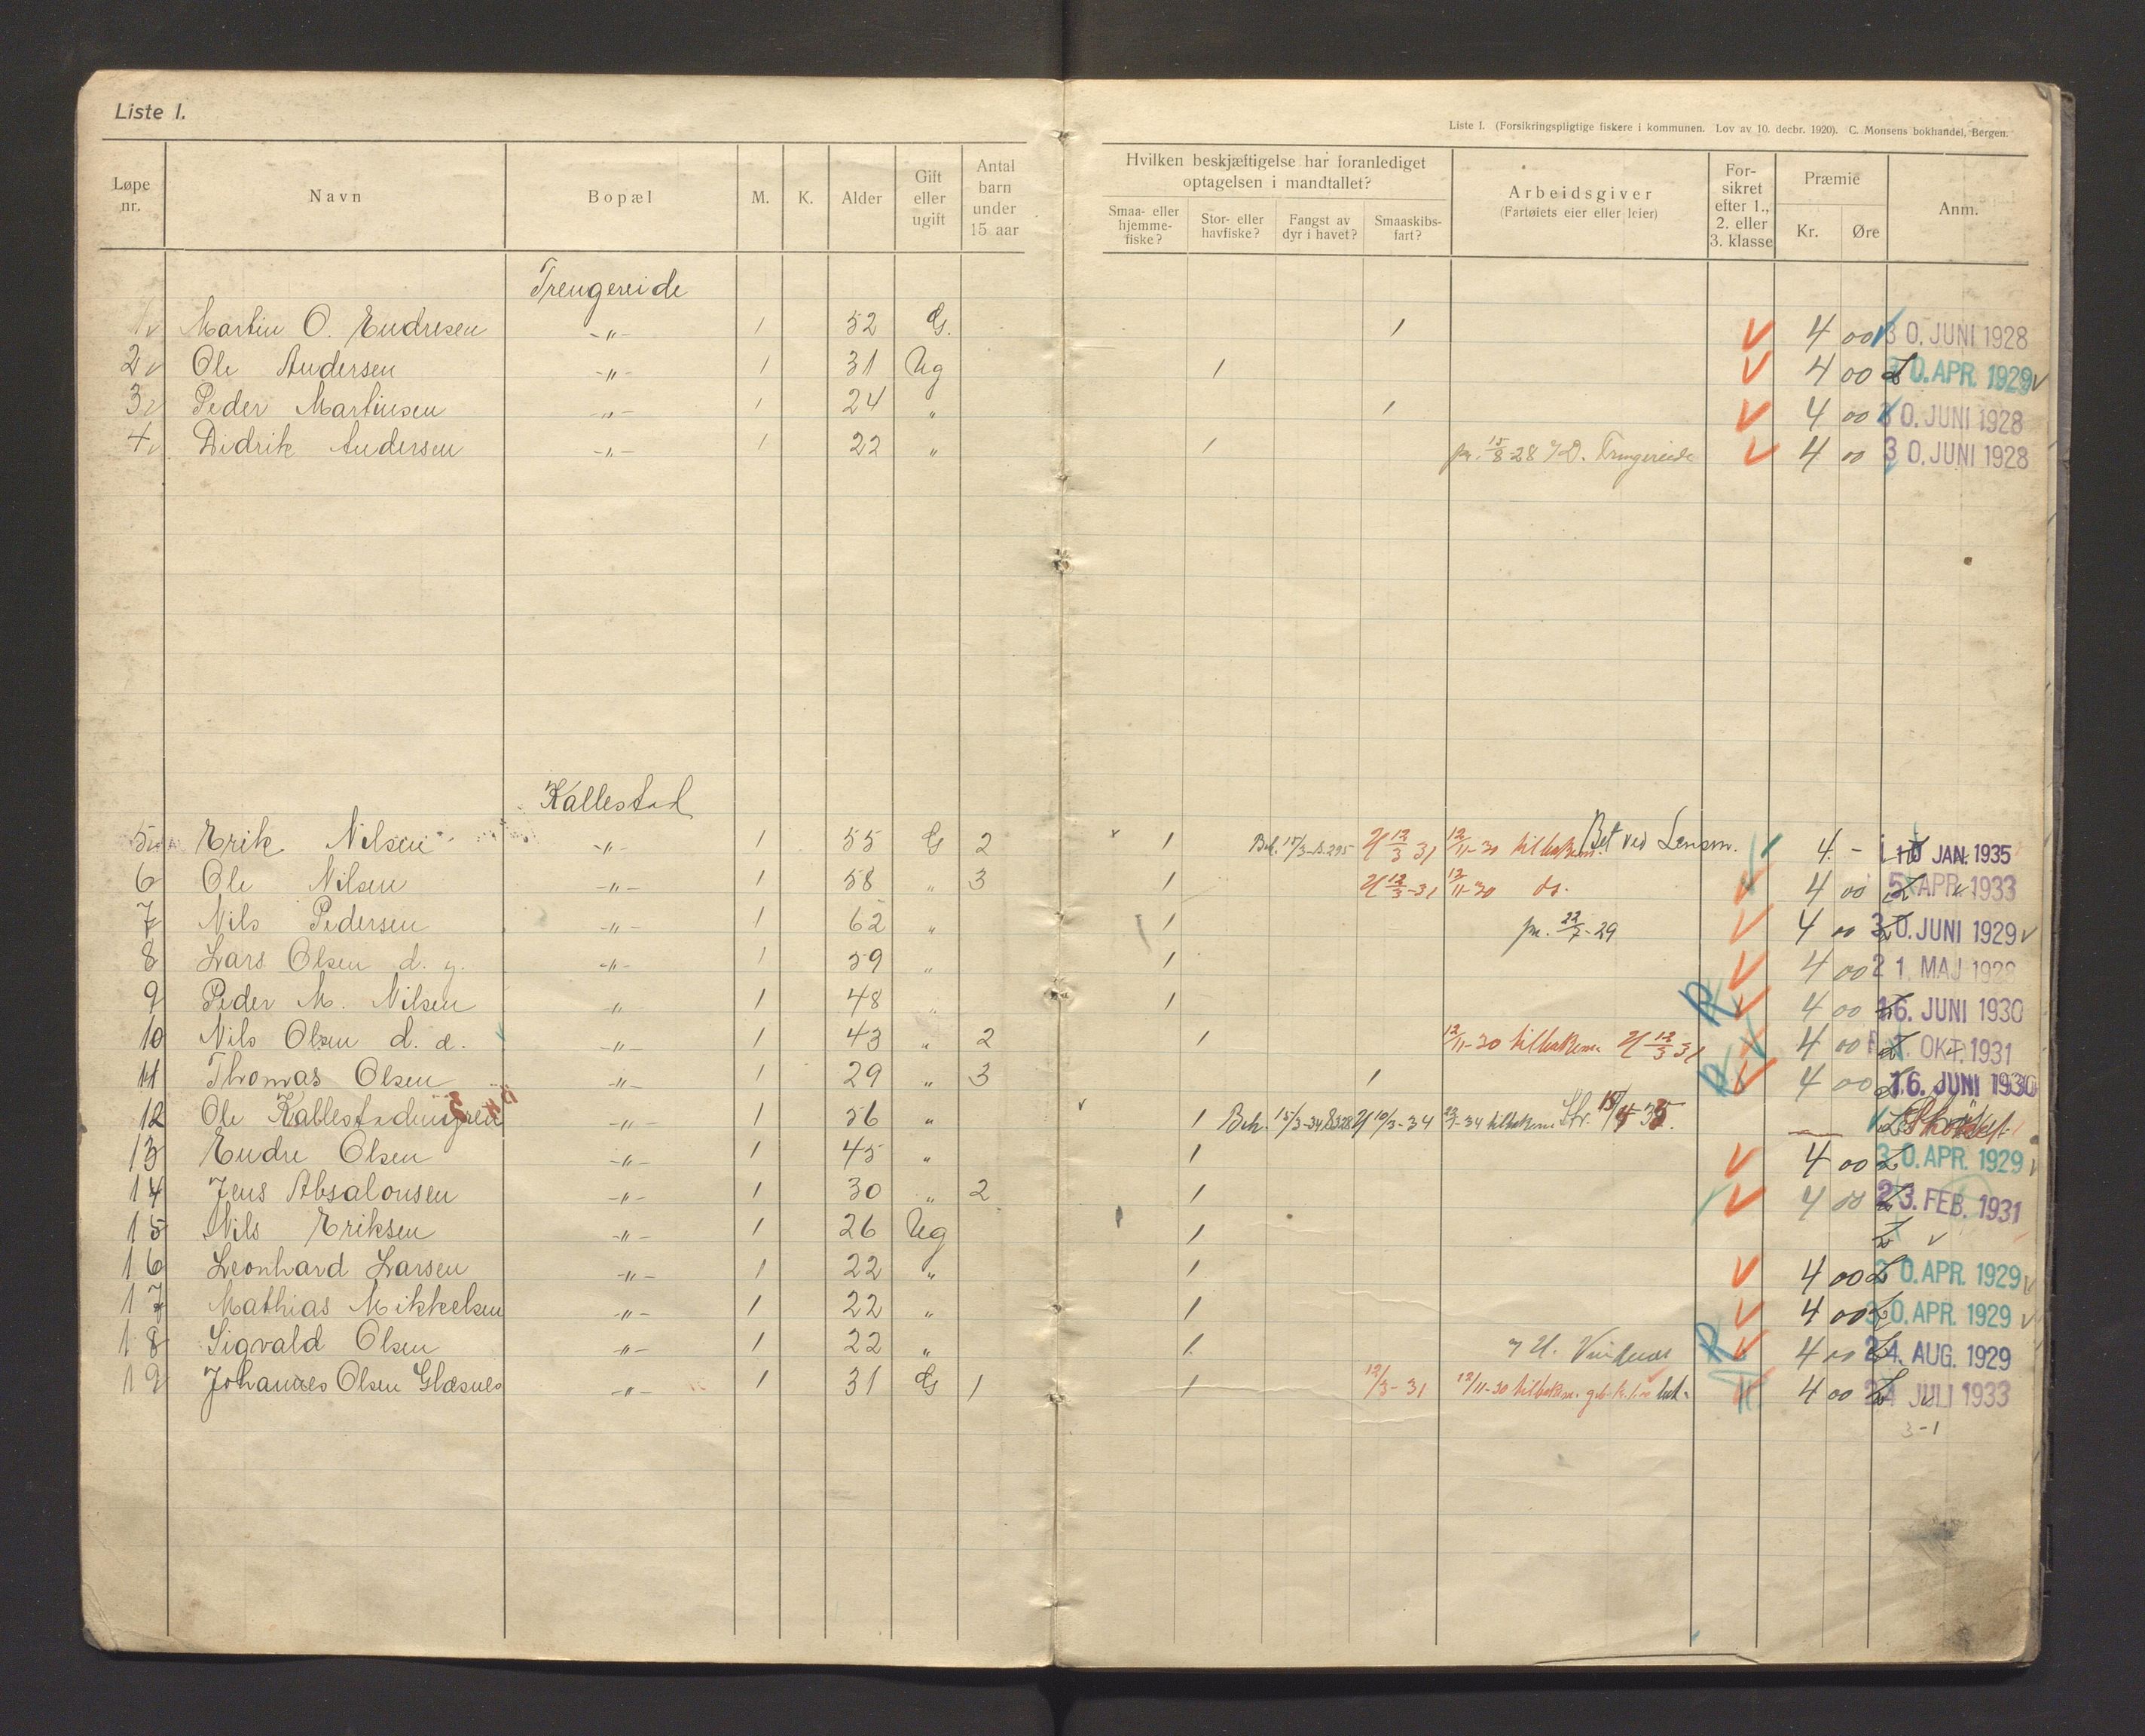 Liste I.
Liste I. (Forsikringspligtige fiskere i kommunen. Lov av 10. decbr. 1920). C. Monsens bokhandel, Bergen.
Løpe nr. Navn Bopæl M. K. Alder Gift eller ugift Antal barn under 15 aar Hvilken beskjæftigelse har foranlediget optagelsen i mandtallet? Smaa- eller hjemmefiske? Stor- eller havfiske? Fangst av dyr i havet? Smaaskibsfart? Arbeidsgiver (Fartøiets eier eller leier) Forsikret efter 1., 2. eller 3. klasse Præmie Kr. Øre Anm.
Trengereide
1 Martin O. Endresen -"- 1 52 G. 1 4 00 30. JUNI 1928
2 Ole Andersen -"- 1 31 Ug 1 4 00 30. APR. 1929
3 Peder Martinsen -"- 1 24 " 1 4 00 30. JUNI 1928
4 Didrik Andersen -"- 1 22 " 1 pr. 15/8-28 Trengereide 4 00 30. JUNI 1928
Kallestad
5 Erik Nilsen -"- 1 55 G 2 1 12/3 31 12/11-30 Bet ved Lensm. 4. - JAN. 1935
6 Ole Nilsen -"- 1 58 " 3 1 12/3-31 12/11-30 do. 4 00 5 APR. 1933
7 Nils Pedersen -"- 1 62 " 1 pr. 22/7-29 4 00 30. JUNI 1929
8 Lars Olsen d. y. -"- 1 59 " 1 4 00 21. MAJ 1928
9 Peder M. Nilsen " 1 48 " 1 R 4 00 16. JUNI 1930
10 Nils Olsen d. e. -"- 1 43 " 2 1 12/11-30 12/3 31 4 00 OKT. 1931
11 Thomas Olsen -"- 1 29 " 3 1 R 4 00 16. JUNI 1930
12 Ole Kallestad -"- 1 56 " 1 15/3-34 10/3-34
13 Endre Olsen -"- 1 45 " 1 4 00 30. APR. 1929
14 Jens Absalonsen -"- 1 30 " 2 1 4 00 23. FEB. 1931
15 Nils Eriksen -"- 1 26 Ug 1
16 Leonhard Larsen -"- 1 22 " 1 4 00 30. APR. 1929
17 Mathias Mikkelsen -"- 1 22 " 1 4 00 30. APR. 1929
18 Sigvald Olsen -"- 1 22 " 1 R 4 00 24. AUG. 1929
19 Johannes Olsen Glæsnes -"- 1 31 G 1 1 12/3-31 12/11-30 4 00 24 JULI 1933
3-1